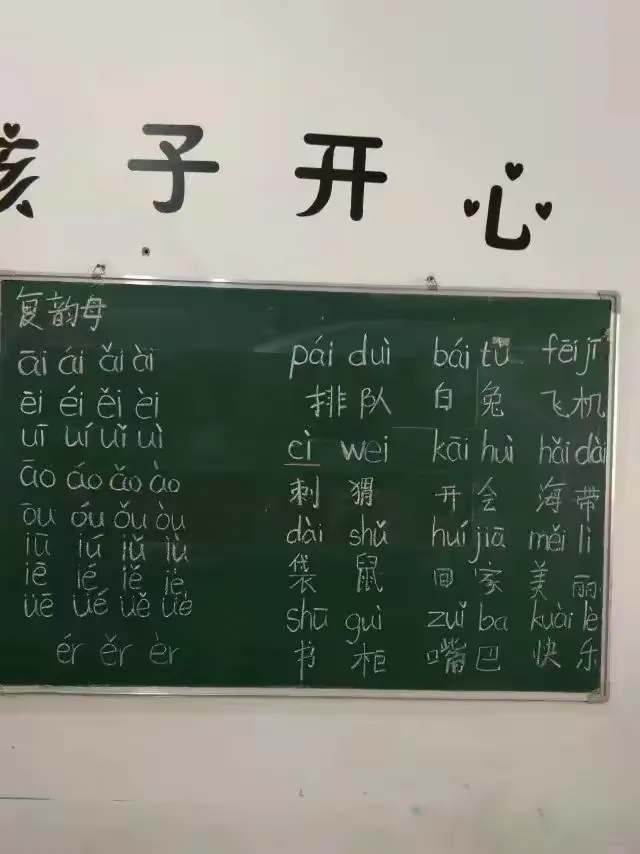 孩子开心
复韵母
āi ái ǎi ài
ēi éi ěi èi
uī uí uǐ uì
āo áo ǎo ào
ōu óu ǒu òu
iū iú iǔ iù
iē ié iě iè
üē üé üě üè
ér ěr èr
pái duì bái tù fēi jī
排队 白兔 飞机
cì wei kāi huì hǎi dài
刺猬 开会 海带
dài shǔ huí jiā měi lì
袋鼠 回家 美丽
shū guì zuǐ ba kuài lè
书柜 嘴巴 快乐